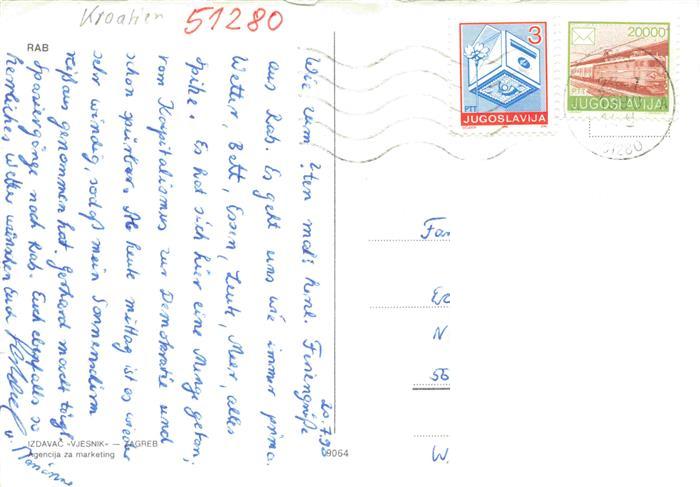 Kroatien 51280
RAB
20.7.90
Wie zum ?ten mal! herzl. Feriengrüße
aus Rab. Es geht uns wie immer prima.
Wetter, Bett, Essen, Leute, Meer, alles
Spitze. Es hat sich hier eine Menge getan,
vom Kapitalismus zur Demokratie und
schon spürbar. Ab heute mittag ist es wieder
sehr windig, sodaß mein Sonnenschirm
reißaus genommen hat. Gerhard macht tägl.
Spaziergänge nach Rab. Euch ebenfalls so
herrliches Wetter wünschen Euch
u. Marianne
IZDAVAČ »VJESNIK« — ZAGREB
Agencija za marketing
9064
3
PTT
JUGOSLAVIJA
20000
PTT
JUGOSLAVIJA
51280
Fa
N
55
W